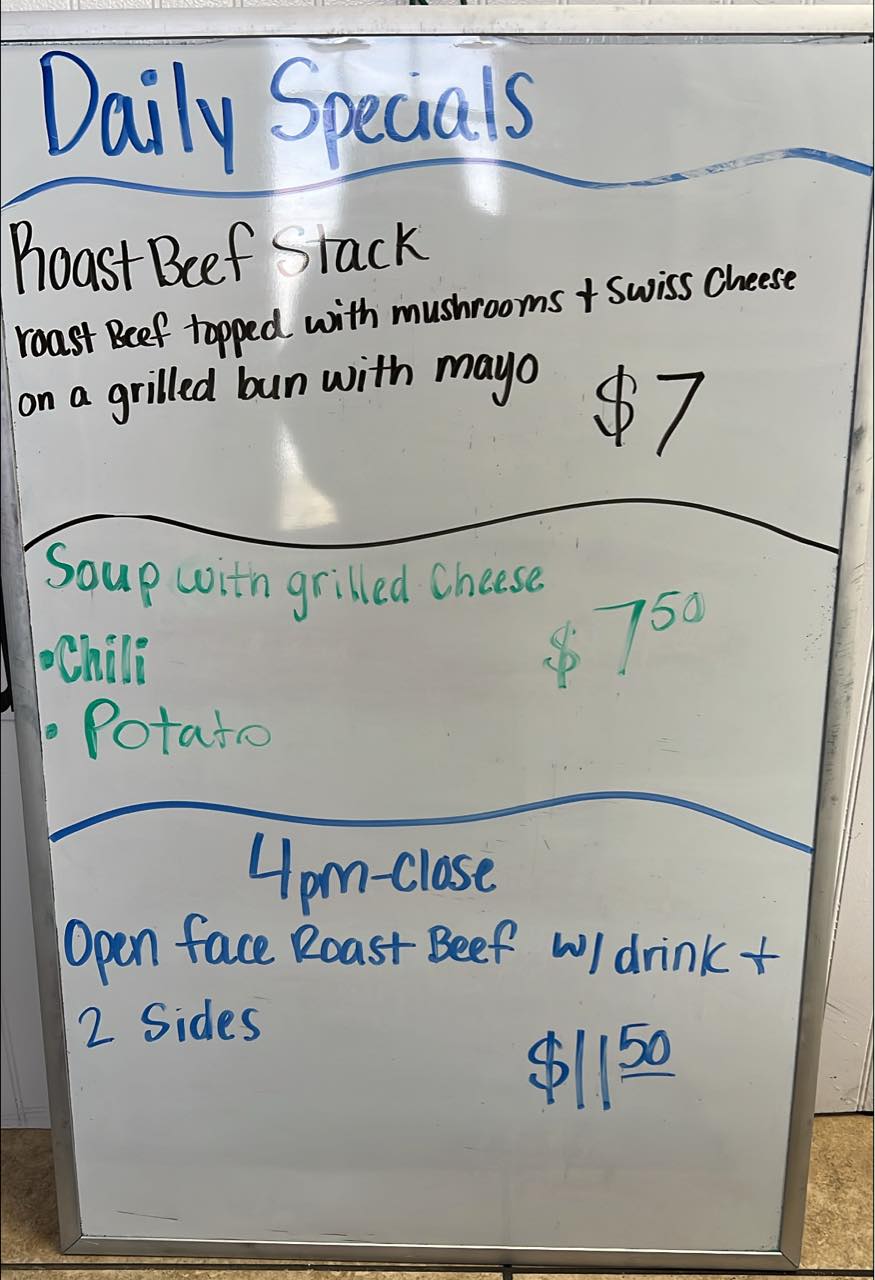 Daily Specials
Roast Beef Stack
roast Beef topped with mushrooms + Swiss Cheese
on a grilled bun with mayo
$7
Soup with grilled Cheese
•Chili
$7 50
• Potato
4pm-Close
Open face Roast Beef w/ drink +
2 Sides
$11 50